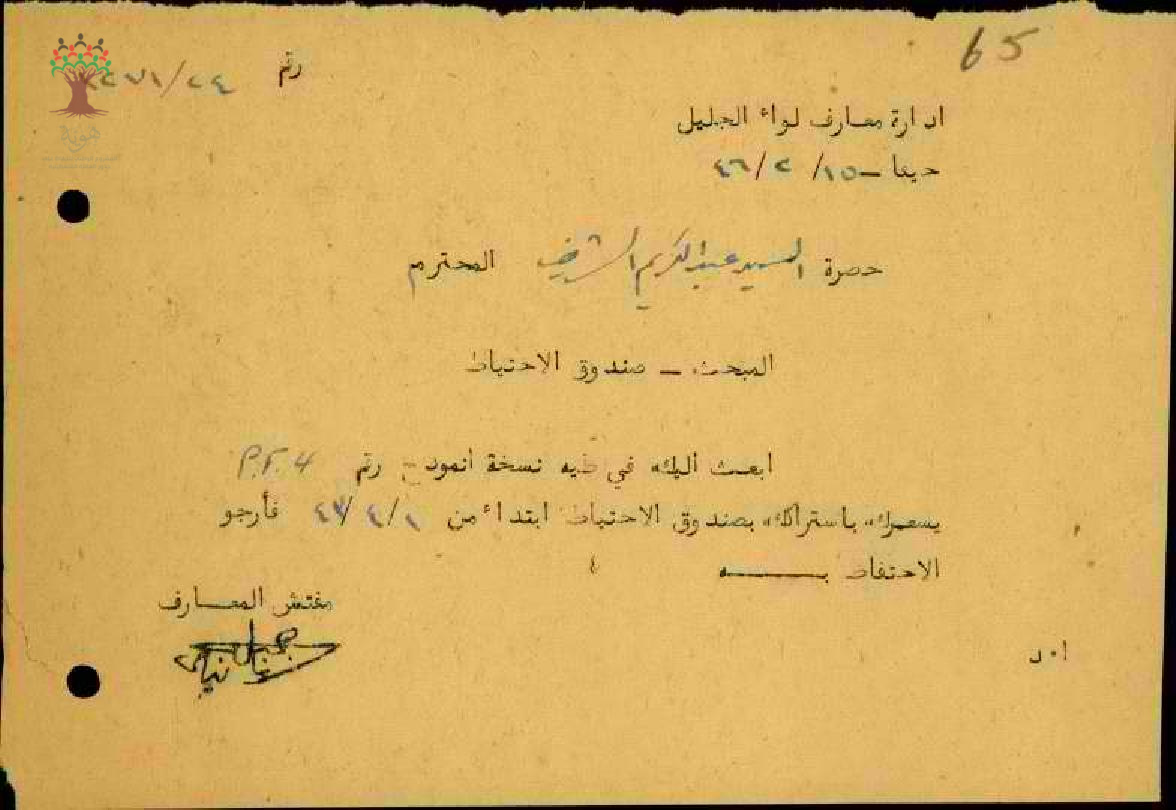 65
رقم ٢٤/
ادارة معارف لواء الجليل
حيفا – ١٥/ ٢ /٤٦
حضرة السيد عبد الكريم الشريف المحترم
المبحث – صندوق الاحتياط
ابعث اليك في طيه نسخة أنموذج رقم P.F. 4
يشعرك باشتراكك بصندوق الاحتياط ابتداء من ١/٤/ فأرجو
الاحتفاظ بــــه ٤
مفتش المعارف
ا٠د
هوية